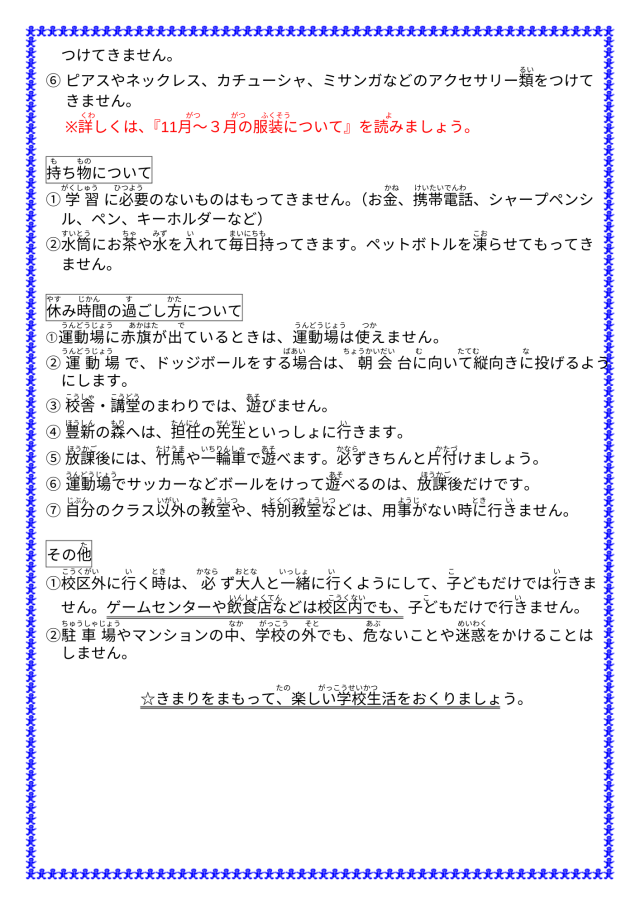 つけてきません。
⑥ ピアスやネックレス、カチューシャ、ミサンガなどのアクセサリー類をつけて
きません。
※詳しくは、『11月～３月の服装について』を読みましょう。
持ち物について
① 学習に必要のないものはもってきません。（お金、携帯電話、シャープペンシ
ル、ペン、キーホルダーなど）
②水筒にお茶や水を入れて毎日持ってきます。ペットボトルを凍らせてもってき
ません。
休み時間の過ごし方について
①運動場に赤旗が出ているときは、運動場は使えません。
② 運動場で、ドッジボールをする場合は、朝会台に向いて縦向きに投げるよう
にします。
③ 校舎・講堂のまわりでは、遊びません。
④ 豊新の森へは、担任の先生といっしょに行きます。
⑤ 放課後には、竹馬や一輪車で遊べます。必ずきちんと片付けましょう。
⑥ 運動場でサッカーなどボールをけって遊べるのは、放課後だけです。
⑦ 自分のクラス以外の教室や、特別教室などは、用事がない時に行きません。
その他
①校区外に行く時は、必ず大人と一緒に行くようにして、子どもだけでは行きま
せん。ゲームセンターや飲食店などは校区内でも、子どもだけで行きません。
②駐車場やマンションの中、学校の外でも、危ないことや迷惑をかけることは
しません。
☆きまりをまもって、楽しい学校生活をおくりましょう。